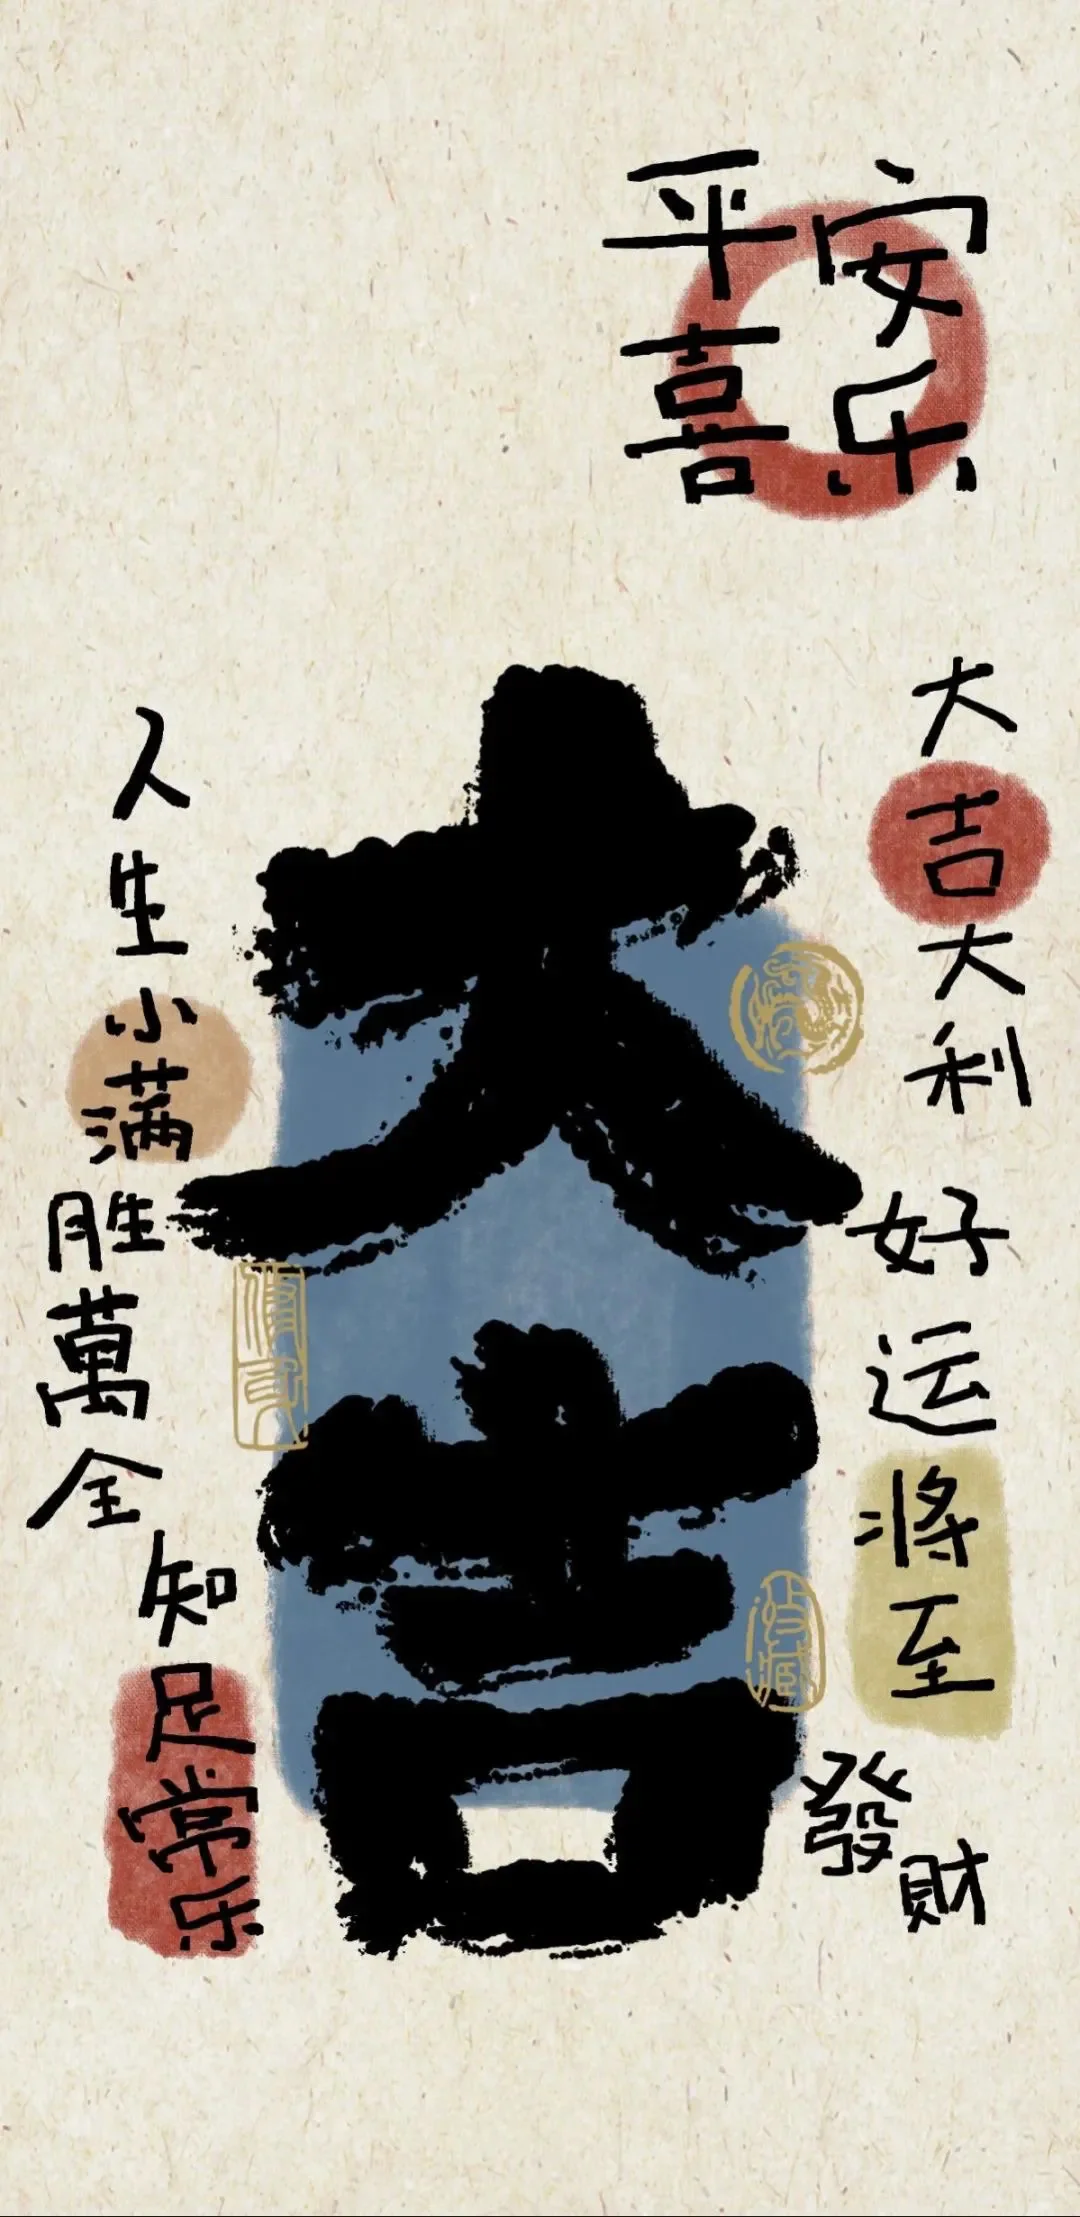 平安
喜乐
大吉大利
好运將至
發財
大吉
人生小满
胜萬全
知足常乐